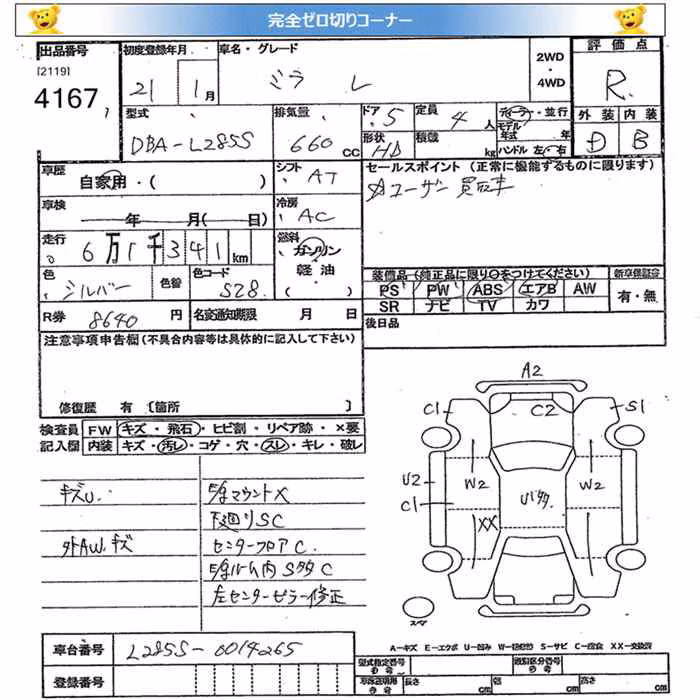 完全ゼロ切りコーナー
出品番号
[2119]
4167
初度登録年月
21 1月
車名・グレード
ミラ L
2WD
・
4WD
評価点
R
外装 内装
D B
型式
DBA-L285S
排気量
660 cc
ドア 5
定員 4人
ディーラー・並行
モデル年式 年
形状 HB
積載 kg
ハンドル 左・右
車歴
自家用・( )
シフト
AT
セールスポイント (正常に機能するものに限ります)
ユーザー買取車
車検
年 月( 日)
冷房
AC
走行
6万1千341km
燃料
ガソリン
軽油
( )
色
シルバー
色替
色コード
S28
装備品(純正品に限り○をつけてください)
新車保証書
PS PW ABS エアB AW
有・無
SR ナビ TV カワ
R券 8640 円
名変通知期限 月 日
後日品
注意事項申告欄(不具合内容等は具体的に記入して下さい)
修復歴 有 [箇所 ]
検査員
記入欄
FW キズ・飛石・ヒビ割・リペア跡・×要
内装 キズ・汚レ・コゲ・穴・スレ・キレ・破レ
キズU.
外AW.キズ
下廻りSC
センターフロアC
左センターピラー修正
A2
C1
C2
S1
U2
C1
W2
W2
XX
スペア
A-キズ E-エクボ U-凹み S-サビ C-腐食 XX-交換済
車台番号
L285S-0014265
登録番号
型式指定番号
類別区分番号
長さ cm
幅 cm
高さ cm